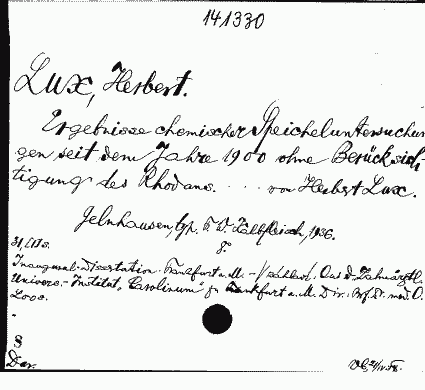 141330
Lux, Herbert.
Ergebnisse chemischer Speicheluntersuchun
gen seit dem Jahre 1900 ohne Berücksich-
tigung des Rhodans. . . . . von Herbert Lux.
Gelnhausen, typ. F. W. Kalbfleisch, 1936.
8.
31, [1] S.
Inaugural-Dissertation. Frankfurt a. M. - Aus d. Zahnärztl.
Univers.-Institut „Carolinum" zu Frankfurt a. M. Dir.: Prof. Dr. med. O.
Loos.
"
§